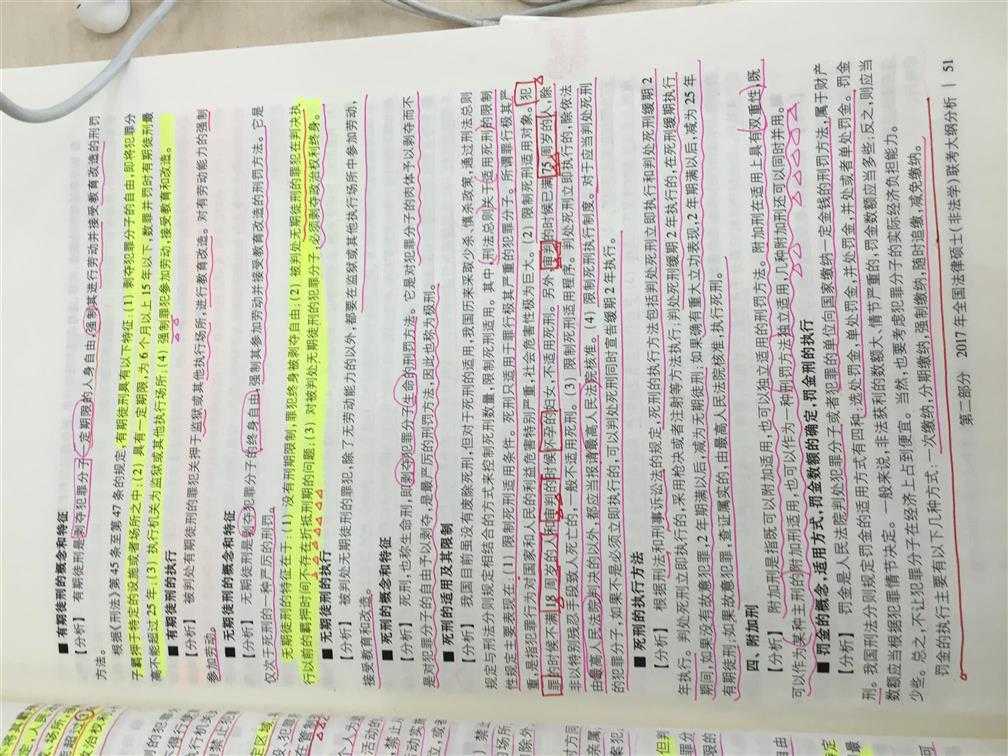 ■ 有期徒刑的概念和特征
【分析】 有期徒刑是剥夺犯罪分子一定期限的人身自由,强制其进行劳动并接受教育改造的刑罚
方法。
根据《刑法》第45条至第47条的规定,有期徒刑具有以下特征:(1) 剥夺犯罪分子的自由,即将犯罪分
子羁押于特定的设施或者场所之中;(2) 具有一定期限,为6个月以上15年以下,数罪并罚时有期徒刑最
高不能超过25年;(3) 执行机关为监狱或其他执行场所;(4) 强制罪犯参加劳动,接受教育和改造。
■ 有期徒刑的执行
【分析】 被判处有期徒刑的罪犯关押于监狱或其他执行场所,进行教育改造。对有劳动能力的强制
参加劳动。
■ 无期徒刑的概念和特征
【分析】 无期徒刑是剥夺犯罪分子的终身自由,强制其参加劳动并接受教育改造的刑罚方法。它是
仅次于死刑的一种严厉的刑罚。
无期徒刑的特征在于:(1) 没有刑期限制,罪犯终身被剥夺自由;(2) 被判处无期徒刑的罪犯在判决执
行以前的羁押时间不存在折抵刑期的问题;(3) 对被判处无期徒刑的犯罪分子,必须剥夺政治权利终身。
■ 无期徒刑的执行
【分析】 被判处无期徒刑的罪犯,除了无劳动能力的以外,都要在监狱或其他执行场所中参加劳动,
接受教育和改造。
■ 死刑的概念和特征
【分析】 死刑,也称生命刑,即剥夺犯罪分子生命的刑罚方法。它是对犯罪分子的肉体予以剥夺而不
是对犯罪分子的自由予以剥夺,是最严厉的刑罚方法,因此也称为极刑。
■ 死刑的适用及其限制
【分析】 我国目前虽没有废除死刑,但对于死刑的适用,我国历来采取少杀、慎杀政策,通过刑法总则
规定与刑法分则规定相结合的方式来控制死刑数量,限制死刑适用。其中,刑法总则关于适用死刑的限制
性规定主要表现在:(1) 限制死刑适用条件。死刑只适用于罪行极其严重的犯罪分子。所谓罪行极其严
重,是指犯罪行为对国家和人民的利益危害特别严重,社会危害性极为巨大。(2) 限制死刑适用对象。犯
罪的时候不满18周岁的人和审判的时候怀孕的妇女,不适用死刑。另外,审判的时候已满75周岁的人,除
非以特别残忍手段致人死亡的,一般不适用死刑。(3) 限制死刑适用程序。判处死刑立即执行的,除依法
由最高人民法院判决的以外,都应当报请最高人民法院核准。(4) 限制死刑执行制度。对于应当判处死刑
的犯罪分子,如果不是必须立即执行的,可以判处死刑同时宣告缓期2年执行。
■ 死刑的执行方法
【分析】 根据刑法和刑事诉讼法的规定,死刑的执行方法包括判处死刑立即执行和判处死刑缓期2
年执行。判处死刑立即执行的,采用枪决或者注射等方法执行;判处死刑缓期2年执行的,在死刑缓期执行
期间,如果没有故意犯罪,2年期满以后,减为无期徒刑;如果确有重大立功表现,2年期满以后,减为25年
有期徒刑;如果故意犯罪,查证属实的,由最高人民法院核准,执行死刑。
四、附加刑
【分析】 附加刑是指既可以附加适用,也可以独立适用的刑罚方法。附加刑在适用上具有双重性,既
可以作为某种主刑的附加刑适用,也可以作为一种刑罚方法独立适用,几种附加刑还可以同时并用。
■ 罚金的概念,适用方式,罚金数额的确定,罚金刑的执行
【分析】 罚金是人民法院判处犯罪分子或者犯罪的单位向国家缴纳一定金钱的刑罚方法,属于财产
刑。我国刑法分则规定罚金的适用方式有四种:选处罚金、单处罚金、并处罚金、并处或者单处罚金。罚金
数额应当根据犯罪情节决定。一般来说,非法获利的数额大、情节严重的,罚金数额应当多些;反之,则应当
少些。总之,不让犯罪分子在经济上占到便宜。当然,也要考虑犯罪分子的实际经济负担能力。
罚金的执行主要有以下几种方式:一次缴纳,分期缴纳,强制缴纳,随时追缴,减免缴纳。
第二部分 2017年全国法律硕士(非法学)联考大纲分析 | 51